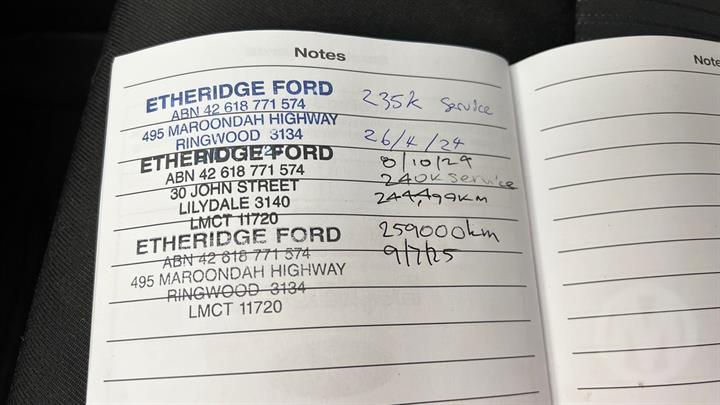 Notes
Note
ETHERIDGE FORD
ABN 42 618 771 574
495 MAROONDAH HIGHWAY
RINGWOOD 3134
235k service
26/4/24
ETHERIDGE FORD
ABN 42 618 771 574
30 JOHN STREET
LILYDALE 3140
LMCT 11720
8/10/24
240k service
ETHERIDGE FORD
ABN 42 618 771 574
495 MAROONDAH HIGHWAY
RINGWOOD 3134
LMCT 11720
259000km
9/7/25